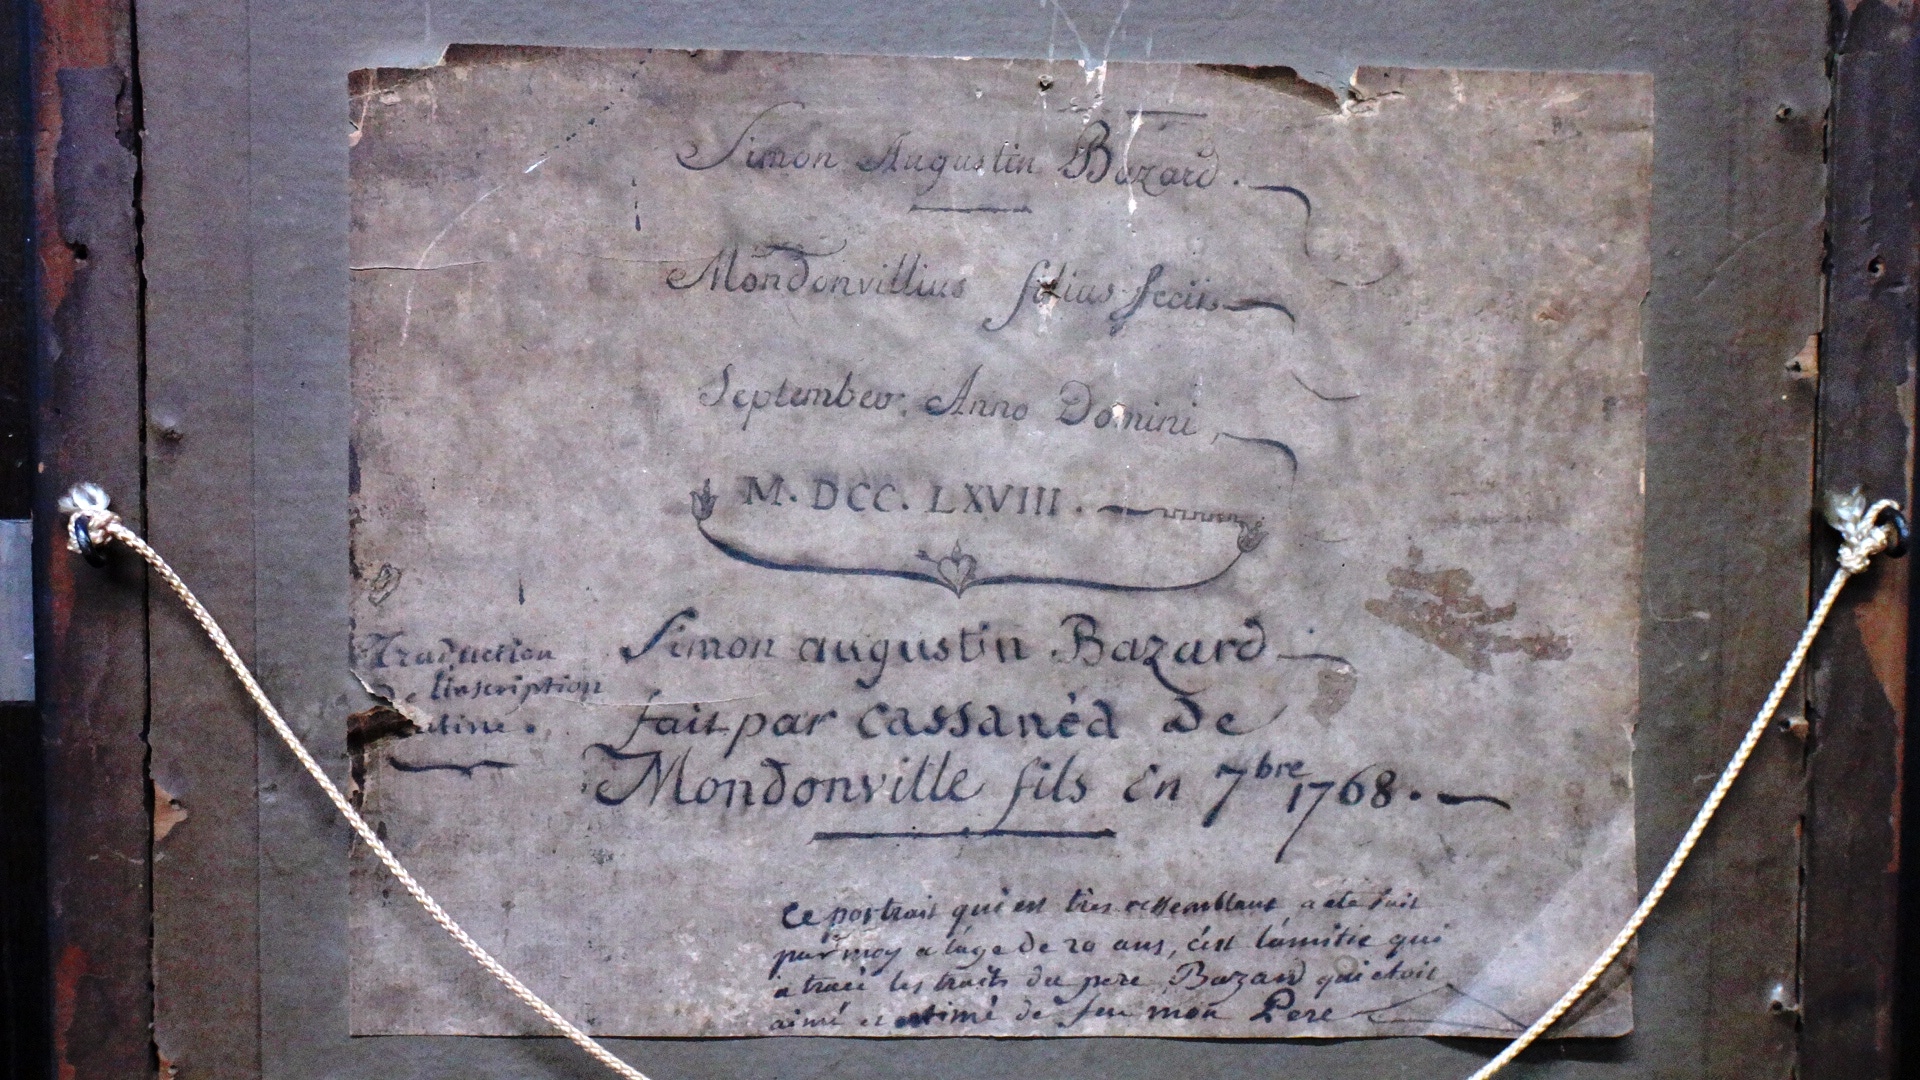 Simon Augustin Bazard.
Mondonvillius filius feciit
September. Anno Domini,
M. DCC. LXVIII.
Traduction
De l'inscription
latine.
Simon augustin Bazard
fait par cassanéa de
Mondonville fils en 7bre 1768.
ce portrait qui est très ressemblant a été fait
par moy a l'age de 20 ans, c'est l'amitié qui
a tracé les traits du pere Bazard qui etoit
aimé et estimé de feu mon Pere